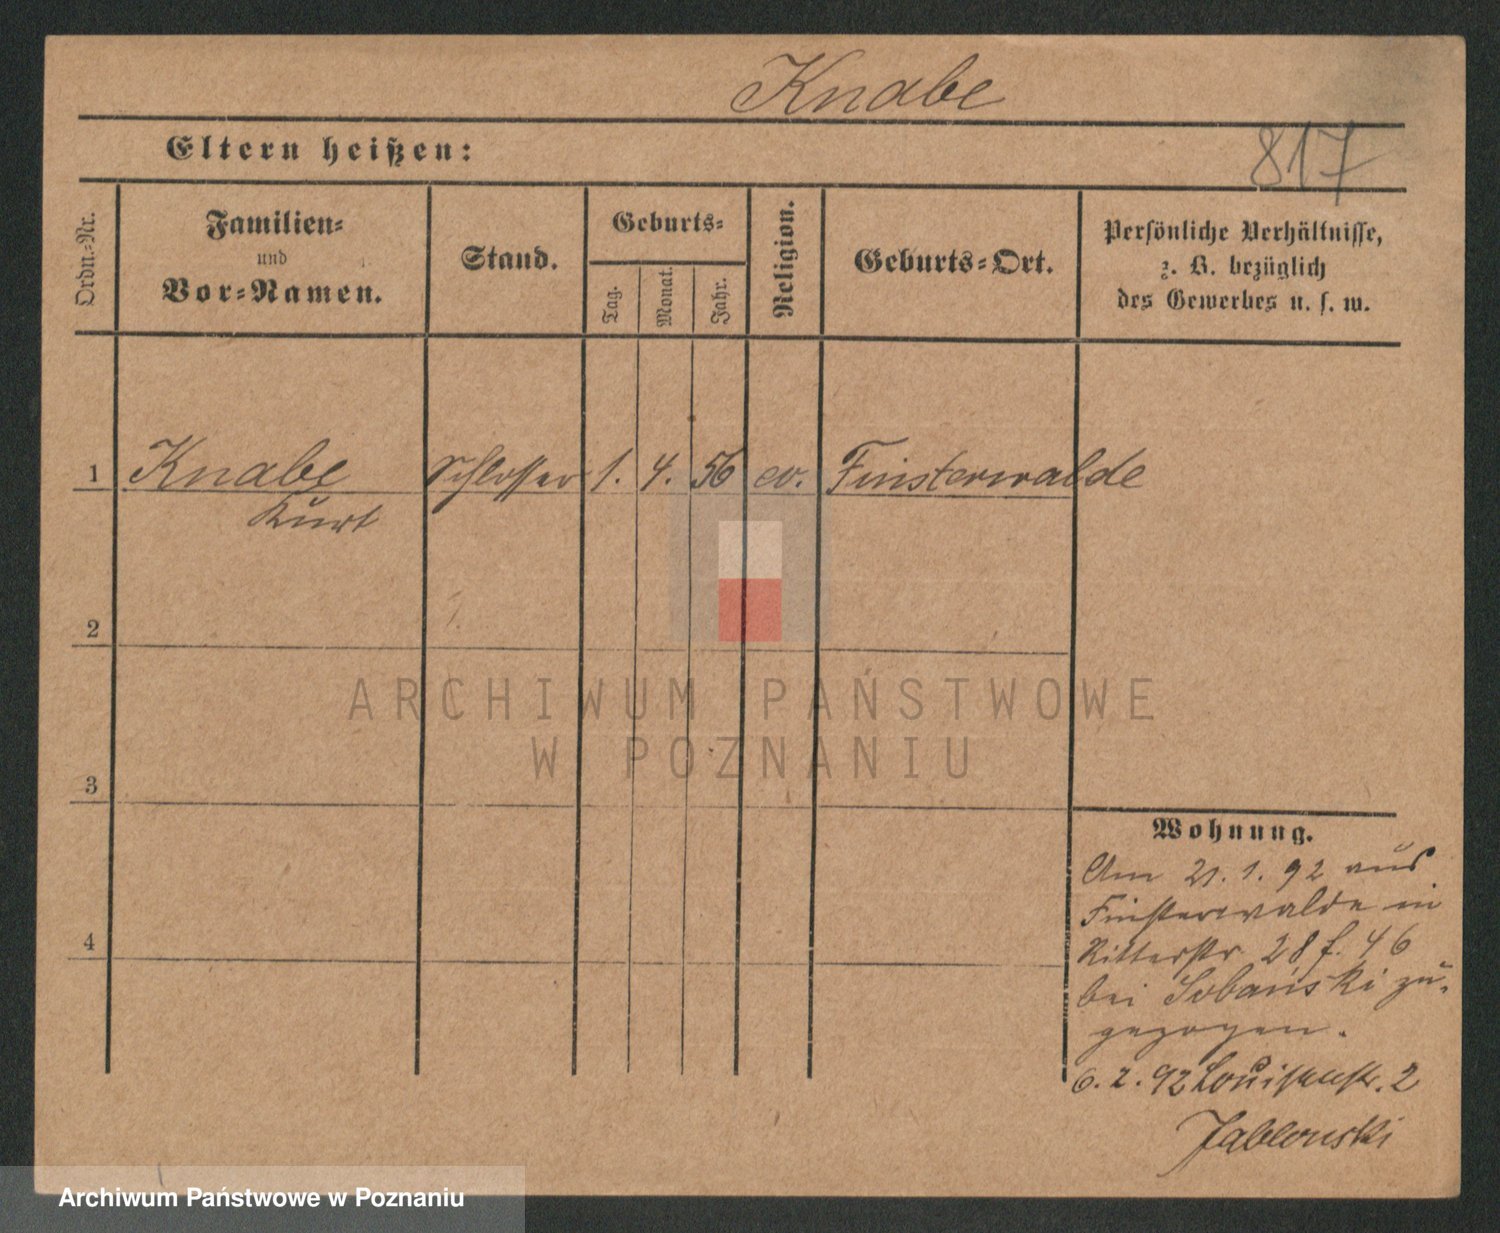 Knabe
Eltern heißen:
817
Ordn.-Nr.
Familien-
und
Vor-Namen.
Stand.
Geburts-
Tag.
Monat.
Jahr.
Religion.
Geburts-Ort.
Persönliche Verhältnisse,
z. B. bezüglich
des Gewerbes u. s. w.
1 Knabe Schlosser 1. 4. 56 ev. Finsterwalde
Kurt
2
ARCHIWUM PAŃSTWOWE
W POZNANIU
3
Wohnung.
Am 21. 1. 92 aus
Finsterwalde in
4
Ritterstr. 28 f. 46
bei Sobański zu-
gezogen.
6. 2. 92 Louisenstr. 2
Jablonski
Archiwum Państwowe w Poznaniu